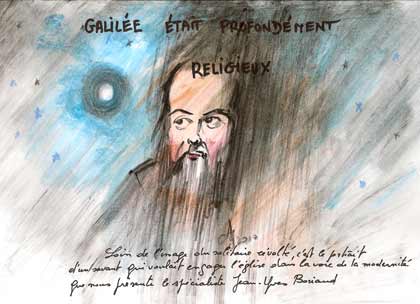 GALILÉE ÉTAIT PROFONDÉMENT
RELIGIEUX
2017
Loin de l'image du solitaire révolté, c'est le portrait
d'un savant qui voulait engager l'église dans la voie de la modernité
que nous présente le spécialiste Jean-Yves Boriaud